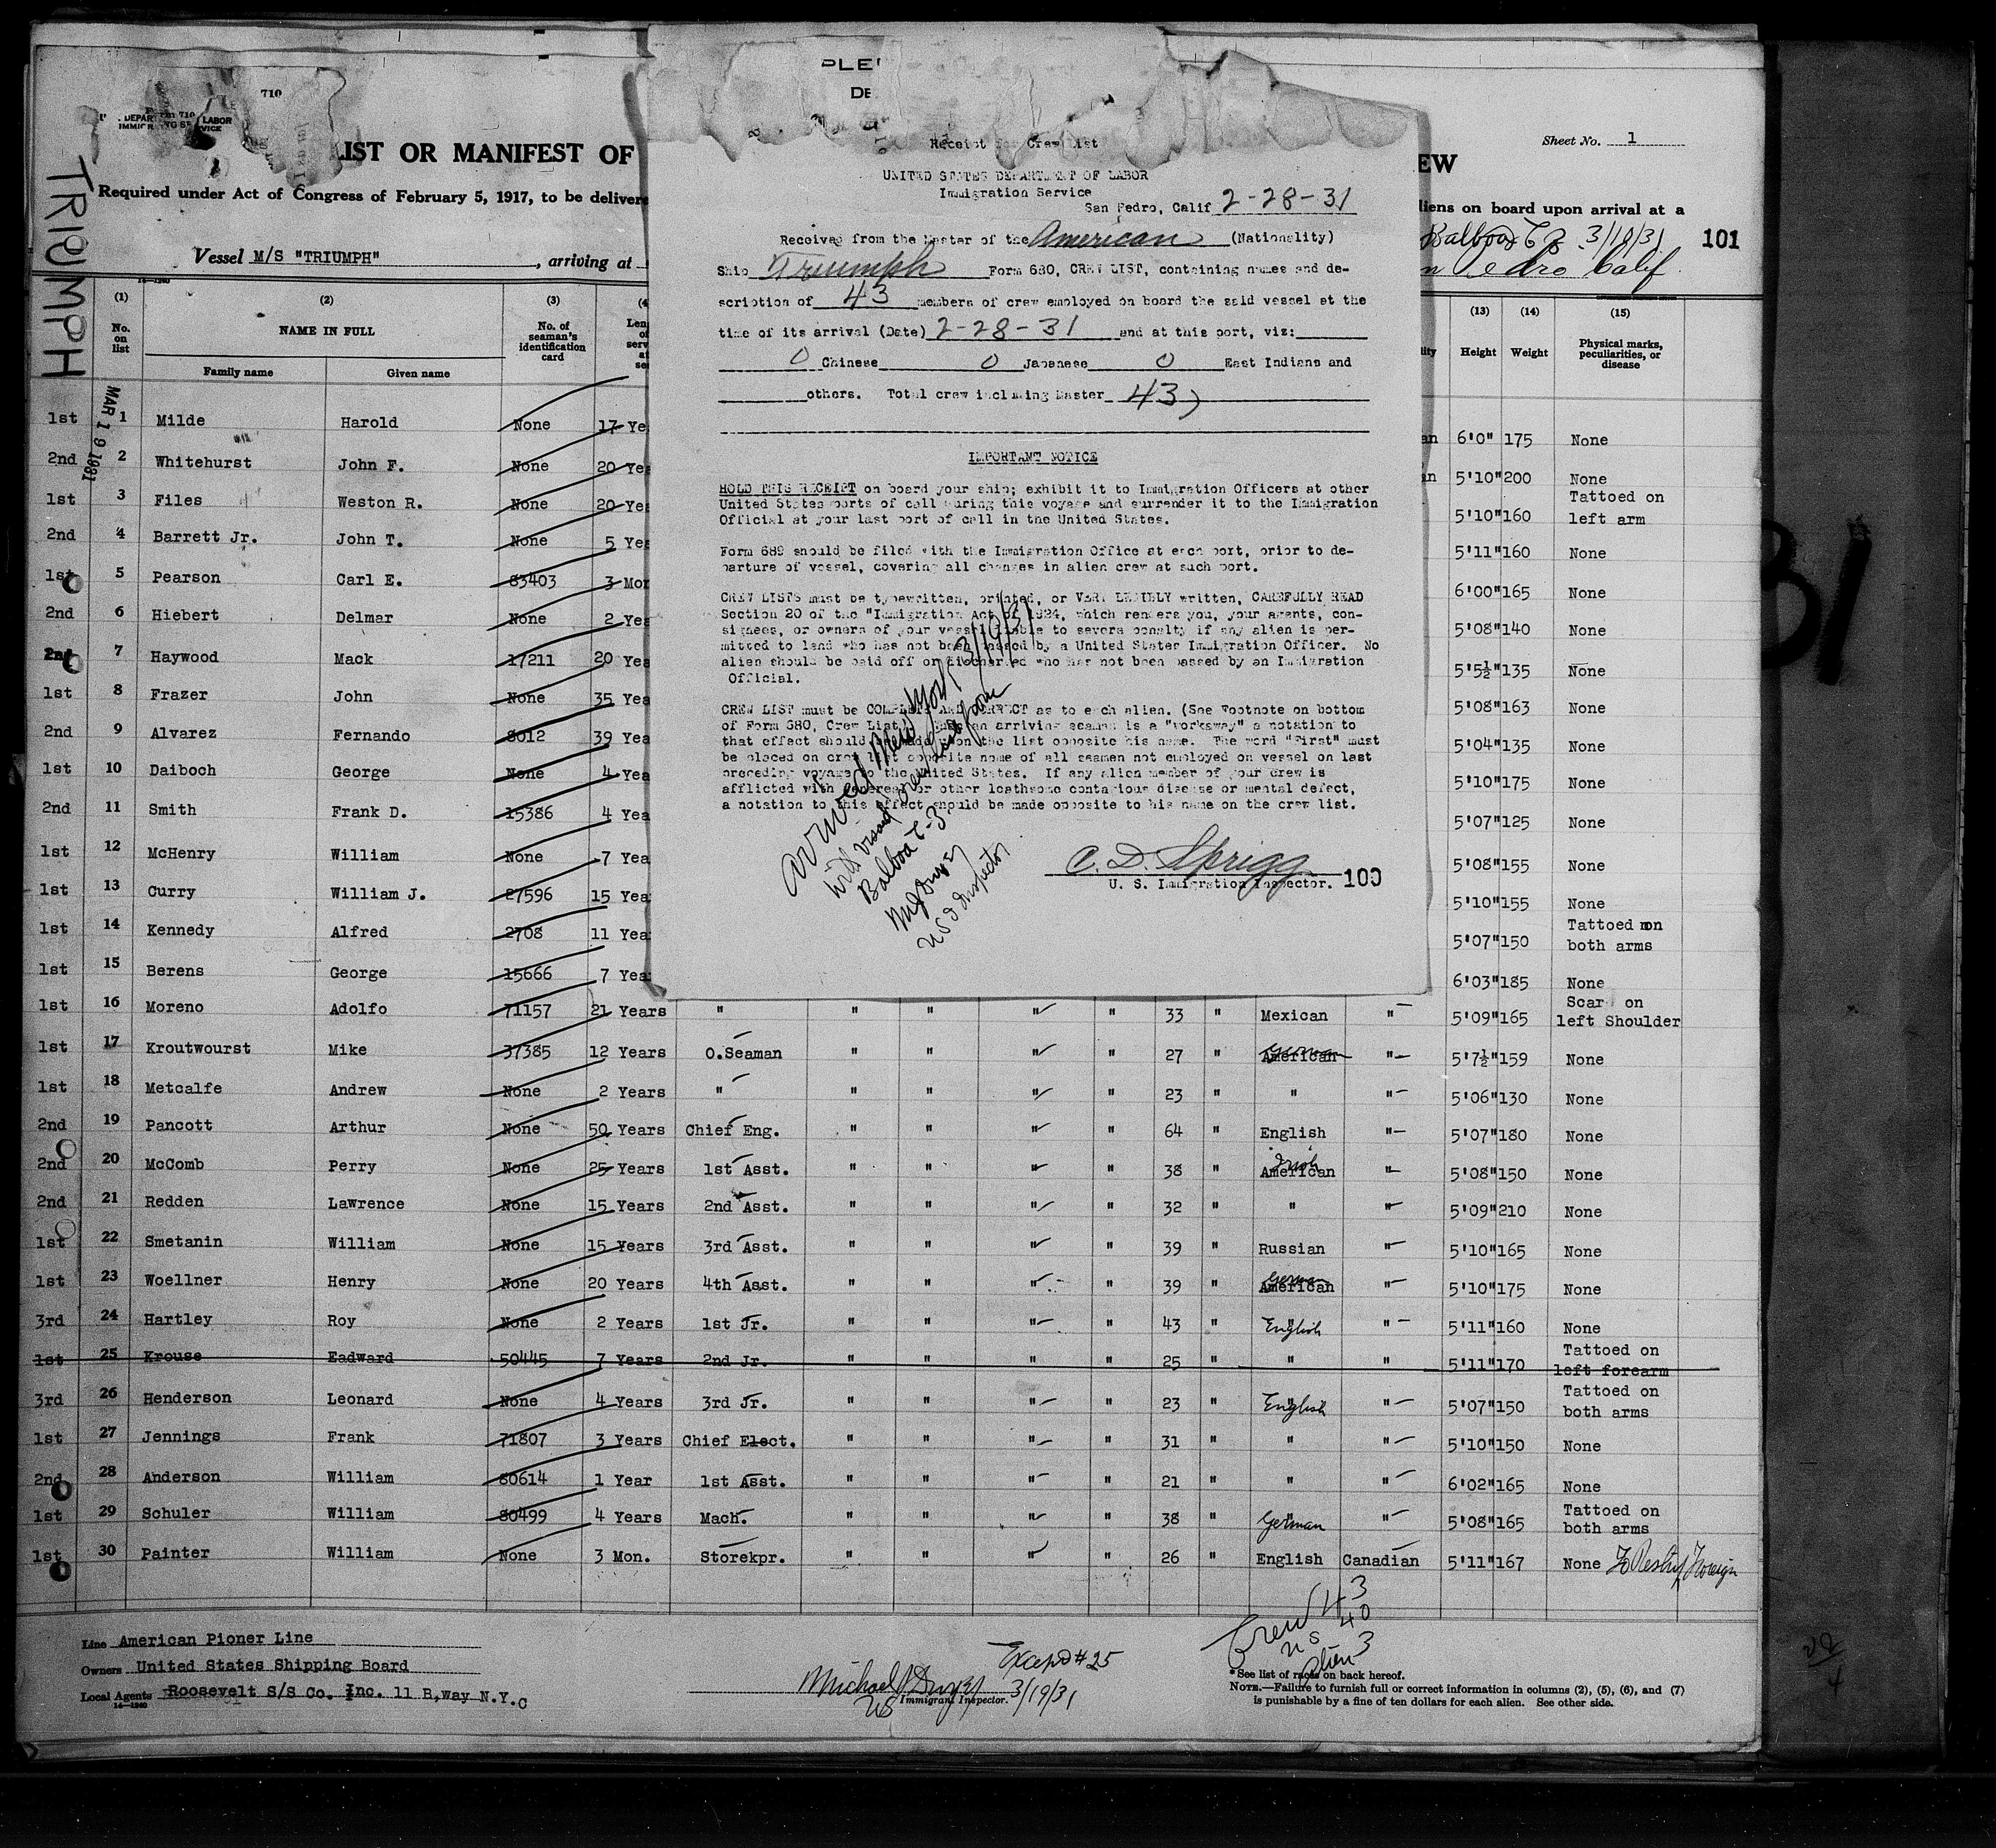 TRIUMPH
710
LIST OR MANIFEST OF
EW
Sheet No. 1
Required under Act of Congress of February 5, 1917, to be delivere
liens on board upon arrival at a
Vessel M/S "TRIUMPH" , arriving at
Balboa C Z 3/10/31 101
n Pedro Calif
PLE
DE
Receipt for Crew List
UNITED STATES DEPARTMENT OF LABOR
Immigration Service
San Pedro, Calif 2-28-31
Received from the Master of the American (Nationality)
Ship Triumph Form 680, CREW LIST, containing names and de-
scription of 43 members of crew employed on board the said vessel at the
time of its arrival (Date) 2-28-31 and at this port, viz:
0 Chinese 0 Japanese 0 East Indians and
others. Total crew including Master 43
IMPORTANT NOTICE
HOLD THIS RECEIPT on board your ship; exhibit it to Immigration Officers at other
United States ports of call during this voyage and surrender it to the Immigration
Official at your last port of call in the United States.
Form 689 should be filed with the Immigration Office at each port, prior to de-
parture of vessel, covering all changes in alien crew at such port.
CREW LISTS must be typewritten, printed, or VERY LEGIBLY written, CAREFULLY READ
Section 20 of the "Immigration Act of 1924, which renders you, your agents, con-
signees, or owners of your vessel liable to severe penalty if any alien is per-
mitted to land who has not been passed by a United States Immigration Officer. No
alien should be paid off or discharged who has not been passed by an Immigration
Official.
CREW LIST must be COMPLETE AND CORRECT as to each alien. (See Footnote on bottom
of Form 680, Crew List) an arriving seaman is a "workaway" a notation to
that effect should be made upon the list opposite his name. The word "First" must
be placed on crew list opposite name of all seamen not employed on vessel on last
preceding voyage to the United States. If any alien member of your crew is
afflicted with venereal or other loathsome contagious disease or mental defect,
a notation to this effect should be made opposite to his name on the crew list.
Arrived New York 3/19/31
with visaed crew list from
Balboa C-Z
US I Inspector
C. D. Sprigg
U. S. Immigration Inspector. 100
(1) (2) (3) (13) (14) (15)
No. on list NAME IN FULL No. of seaman's identification card Height Weight Physical marks, peculiarities, or disease
Family name Given name
MAR 19 1931
1st 1 Milde Harold None 17 Ye an 6'0" 175 None
2nd 2 Whitehurst John F. None 20 Yea an 5'10" 200 None
1st 3 Files Weston R. None 20 Yea 5'10" 160 Tattoed on left arm
2nd 4 Barrett Jr. John T. None 5 Yea 5'11" 160 None
1st 5 Pearson Carl E. 83403 3 Mon 6'00" 165 None
2nd 6 Hiebert Delmar None 2 Yea 5'08" 140 None
2nd 7 Haywood Mack 17211 20 Yea 5'5½" 135 None
1st 8 Frazer John None 35 Yea 5'08" 163 None
2nd 9 Alvarez Fernando 8012 39 Yea 5'04" 135 None
1st 10 Daiboch George None 4 Yea 5'10" 175 None
2nd 11 Smith Frank D. 15386 4 Yea 5'07" 125 None
1st 12 McHenry William None 7 Yea 5'08" 155 None
1st 13 Curry William J. 27596 15 Yea 5'10" 155 None
1st 14 Kennedy Alfred 2708 11 Yea 5'07" 150 Tattoed on both arms
1st 15 Berens George 15666 7 Yea 6'03" 185 None
1st 16 Moreno Adolfo 71157 21 Years " " " " " 33 " Mexican " 5'09" 165 Scar on left Shoulder
1st 17 Kroutwourst Mike 37385 12 Years O.Seaman " " " " 27 " American German " 5'7½" 159 None
1st 18 Metcalfe Andrew None 2 Years " " " " " 23 " " " 5'06" 130 None
2nd 19 Pancott Arthur None 50 Years Chief Eng. " " " " 64 " English " 5'07" 180 None
2nd 20 McComb Perry None 25 Years 1st Asst. " " " " 38 " American Irish " 5'08" 150 None
2nd 21 Redden Lawrence None 15 Years 2nd Asst. " " " " 32 " " " 5'09" 210 None
1st 22 Smetanin William None 15 Years 3rd Asst. " " " " 39 " Russian " 5'10" 165 None
1st 23 Woellner Henry None 20 Years 4th Asst. " " " " 39 " American German " 5'10" 175 None
3rd 24 Hartley Roy None 2 Years 1st Jr. " " " " 43 " English " 5'11" 160 None
1st 25 Krouse Eadward 50445 7 Years 2nd Jr. " " " " 25 " " " 5'11" 170 Tattoed on left forearm
3rd 26 Henderson Leonard None 4 Years 3rd Jr. " " " " 23 " English " 5'07" 150 Tattoed on both arms
1st 27 Jennings Frank 71807 3 Years Chief Elect. " " " " 31 " " " 5'10" 150 None
2nd 28 Anderson William 80614 1 Year 1st Asst. " " " " 21 " " " 6'02" 165 None
1st 29 Schuler William 80499 4 Years Mach. " " " " 38 " German " 5'08" 165 Tattoed on both arms
1st 30 Painter William None 3 Mon. Storekpr. " " " " 26 " English Canadian 5'11" 167 None To Reship Foreign
Crew 43
US 40
Alien 3
Line American Pioner Line
Owners United States Shipping Board
Local Agents Roosevelt S/S Co. Inc. 11 B,way N.Y.C
Except #25
US Immigrant Inspector. 3/19/31
*See list of races on back hereof.
NOTE.—Failure to furnish full or correct information in columns (2), (5), (6), and (7)
is punishable by a fine of ten dollars for each alien. See other side.